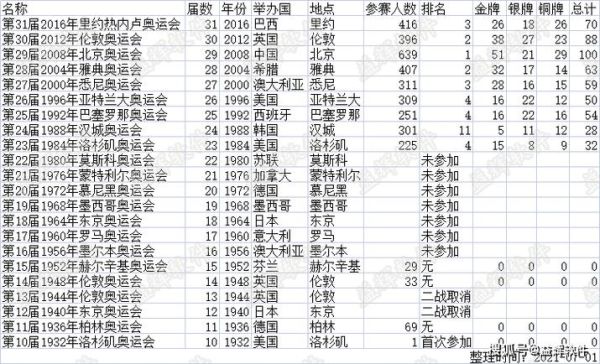 名称 届数 年份 举办国 地点 参赛人数 排名 金牌 银牌 铜牌 总计
第31届2016年里约热内卢奥运会 31 2016 巴西 里约 416 3 26 18 26 70
第30届2012年伦敦奥运会 30 2012 英国 伦敦 396 2 38 27 23 88
第29届2008年北京奥运会 29 2008 中国 北京 639 1 51 21 29 100
第28届2004年雅典奥运会 28 2004 希腊 雅典 407 2 32 17 14 63
第27届2000年悉尼奥运会 27 2000 澳大利亚 悉尼 311 3 28 16 15 59
第26届1996年亚特兰大奥运会 26 1996 美国 亚特兰大 309 4 16 22 12 50
第25届1992年巴塞罗那奥运会 25 1992 西班牙 巴塞罗那 251 4 16 22 16 54
第24届1988年汉城奥运会 24 1988 韩国 汉城 301 11 5 11 12 28
第23届1984年洛杉矶奥运会 23 1984 美国 洛杉矶 225 4 15 8 9 32
第22届1980年莫斯科奥运会 22 1980 苏联 莫斯科 未参加
第21届1976年蒙特利尔奥运会 21 1976 加拿大 蒙特利尔 未参加
第20届1972年慕尼黑奥运会 20 1972 德国 慕尼黑 未参加
第19届1968年墨西哥奥运会 19 1968 墨西哥 墨西哥 未参加
第18届1964年东京奥运会 18 1964 日本 东京 未参加
第17届1960年罗马奥运会 17 1960 意大利 罗马 未参加
第16届1956年墨尔本奥运会 16 1956 澳大利亚 墨尔本 未参加
第15届1952年赫尔辛基奥运会 15 1952 芬兰 赫尔辛基 29 无 0 0 0 0
第14届1948年伦敦奥运会 14 1948 英国 伦敦 33 无 0 0 0 0
第13届1944年伦敦奥运会 13 1944 英国 伦敦 二战取消
第12届1940年东京奥运会 12 1940 日本 东京 二战取消
第11届1936年柏林奥运会 11 1936 德国 柏林 69 无 0 0 0 0
第10届1932年洛杉矶奥运会 10 1932 美国 洛杉矶 1 首次参加 0 0 0 0
整理时间：2021-01-01